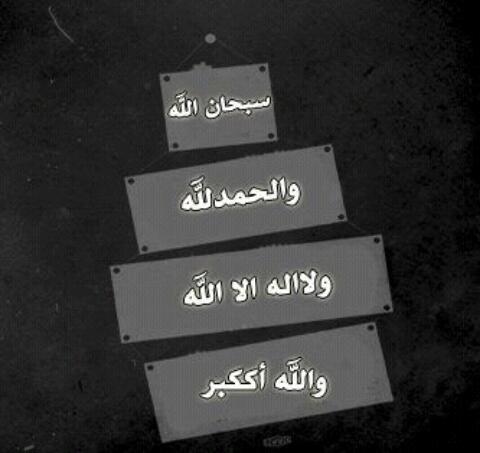 سبحان الله
والحمدلله
ولااله الا الله
والله أككبر